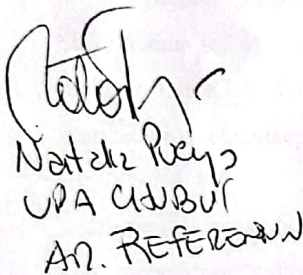 Natalia Pueyo
UPA CHUBUT
An. REFERENDUN